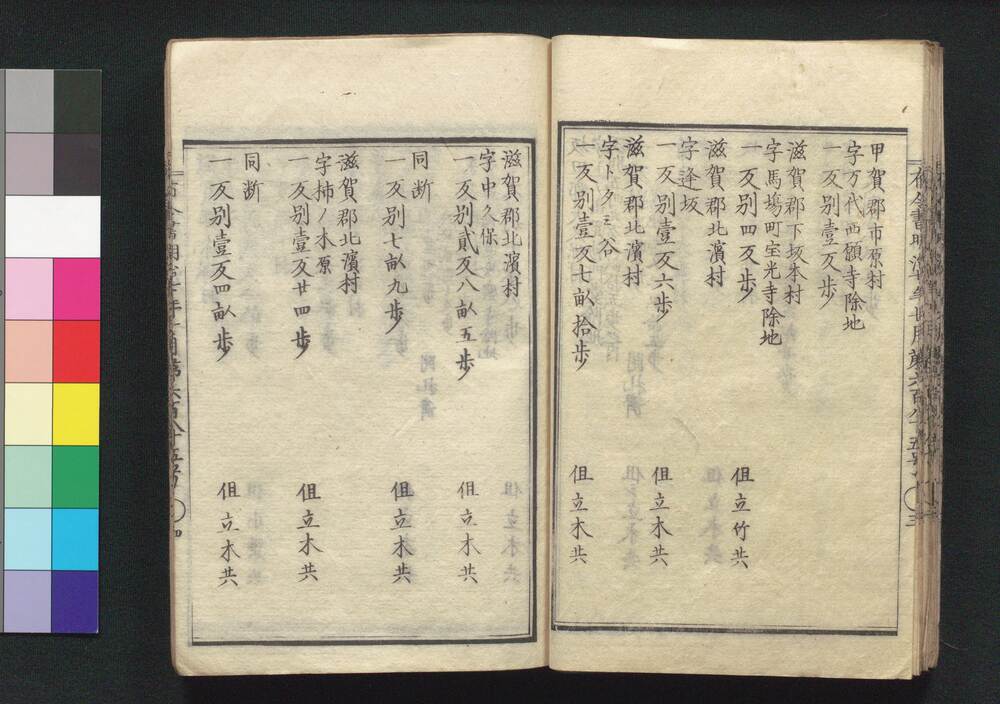 甲賀郡市原村
字万代西願寺除地
一 反別壹反歩
滋賀郡下坂本村
字馬場町宝光寺除地
一 反別四反歩
但立竹共
滋賀郡北濱村
字逢坂
一 反別壹反六歩
但立木共
滋賀郡北濱村
字トクミ谷
一 反別壹反七畝拾歩
但立木共
滋賀郡北濱村
字中久保
一 反別貳反八畝五歩
但立木共
同断
一 反別七畝九歩
但立木共
滋賀郡北濱村
字柿ノ木原
一 反別壹反廿四歩
但立木共
同断
一 反別壹反四畝歩
但立木共